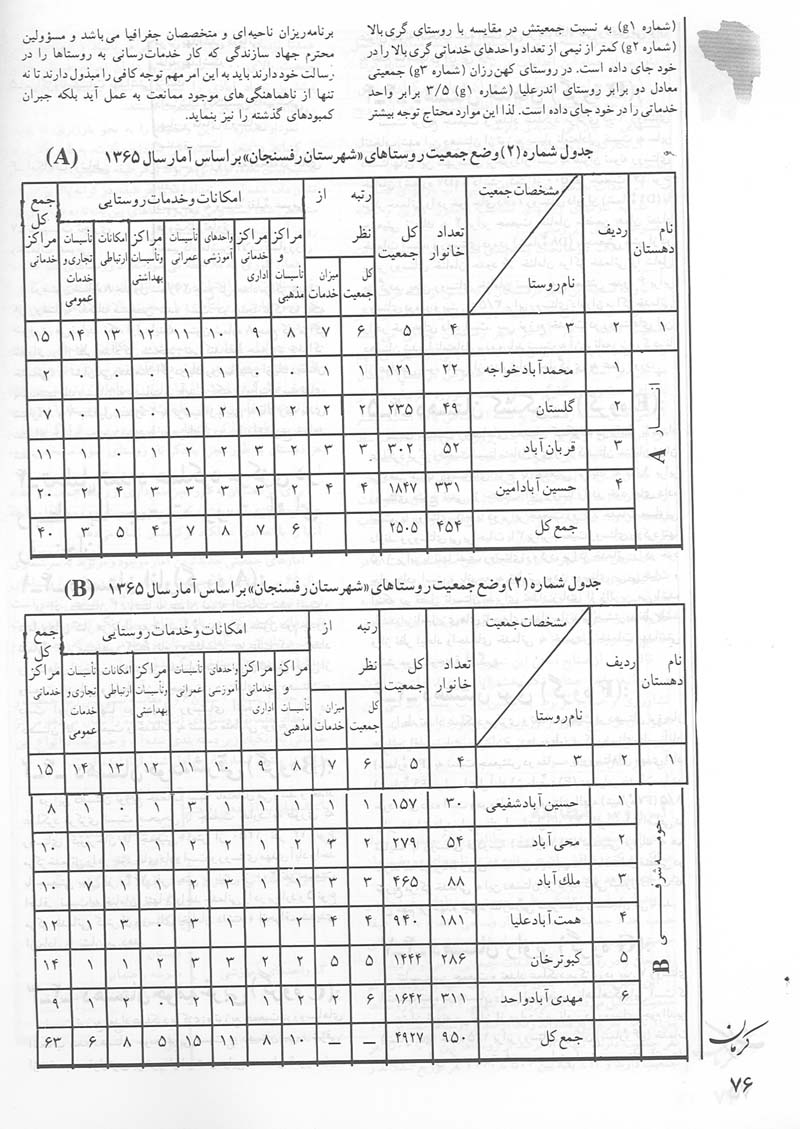 (شماره g۱) به نسبت جمعیتش در مقایسه با روستای گری‌بالا
(شماره g۲) کمتر از نیمی از تعداد واحدهای خدماتی گری‌بالا را در
خود جای داده است. در روستای کهن‌رزان (شماره g۳) جمعیتی
معادل دو برابر روستای اندرعلیا (شماره g۱) ۳/۵ برابر واحد
خدماتی را در خود جای داده است. لذا این موارد محتاج توجه بیشتر
برنامه‌ریزان ناحیه‌ای و متخصصان جغرافیا می‌باشد و مسؤولین
محترم جهاد سازندگی که کار خدمات‌رسانی به روستاها را در
رسالت خود دارند باید به این امر مهم توجه کافی را مبذول دارند تا نه
تنها از ناهماهنگی‌های موجود ممانعت به عمل آید بلکه جبران
کمبودهای گذشته را نیز بنماید.
جدول شماره (۲) وضع جمعیت روستاهای «شهرستان رفسنجان» براساس آمار سال ۱۳۶۵ (A)
نام دهستان | ردیف | مشخصات جمعیت | نام روستا | تعداد خانوار | کل جمعیت | رتبه از نظر | کل جمعیت | میزان خدمات | امکانات و خدمات روستایی | مراکز و تأسیسات مذهبی | مراکز خدماتی اداری | واحدهای آموزشی | تأسیسات عمرانی | مراکز وتأسیسات بهداشتی | امکانات ارتباطی | تأسیسات تجاری و خدمات عمومی | جمع کل مراکز خدماتی
۱ | ۲ | ۳ | ۴ | ۵ | ۶ | ۷ | ۸ | ۹ | ۱۰ | ۱۱ | ۱۲ | ۱۳ | ۱۴ | ۱۵
انار A
۱ | محمدآباد خواجه | ۲۲ | ۱۲۱ | ۱ | ۱ | ۰ | ۰ | ۱ | ۱ | ۰ | ۰ | ۰ | ۲
۲ | گلستان | ۴۹ | ۲۳۵ | ۲ | ۲ | ۲ | ۱ | ۲ | ۱ | ۰ | ۱ | ۰ | ۷
۳ | قربان‌آباد | ۵۲ | ۳۰۲ | ۳ | ۳ | ۲ | ۳ | ۲ | ۲ | ۱ | ۰ | ۱ | ۱۱
۴ | حسین‌آباد امین | ۳۳۱ | ۱۸۴۷ | ۴ | ۴ | ۲ | ۳ | ۳ | ۳ | ۳ | ۴ | ۲ | ۲۰
جمع کل | ۴۵۴ | ۲۵۰۵ | ۶ | ۷ | ۸ | ۷ | ۴ | ۵ | ۳ | ۴۰
جدول شماره (۲) وضع جمعیت روستاهای «شهرستان رفسنجان» براساس آمار سال ۱۳۶۵ (B)
نام دهستان | ردیف | مشخصات جمعیت | نام روستا | تعداد خانوار | کل جمعیت | رتبه از نظر | کل جمعیت | میزان خدمات | امکانات و خدمات روستایی | مراکز و تأسیسات مذهبی | مراکز خدماتی اداری | واحدهای آموزشی | تأسیسات عمرانی | مراکز وتأسیسات بهداشتی | امکانات ارتباطی | تأسیسات تجاری و خدمات عمومی | جمع کل مراکز خدماتی
۲ | ۳ | ۴ | ۵ | ۶ | ۷ | ۸ | ۹ | ۱۰ | ۱۱ | ۱۲ | ۱۳ | ۱۴ | ۱۵
حومه شرقی B
۱ | حسین‌آباد شفیعی | ۳۰ | ۱۵۷ | ۱ | ۱ | ۱ | ۱ | ۱ | ۳ | ۱ | ۱ | ۸
۲ | محی‌آباد | ۵۴ | ۲۷۹ | ۲ | ۳ | ۲ | ۱ | ۲ | ۲ | ۱ | ۱ | ۱ | ۱۰
۳ | ملک‌آباد | ۸۸ | ۴۶۵ | ۳ | ۳ | ۲ | ۱ | ۱ | ۳ | ۱۰
۴ | همت‌آباد علیا | ۱۸۱ | ۹۴۰ | ۴ | ۴ | ۲ | ۲ | ۳ | ۱ | ۱۲
۵ | کبوترخان | ۲۸۶ | ۱۴۴۴ | ۵ | ۵ | ۲ | ۲ | ۳ | ۳ | ۲ | ۱ | ۱ | ۱۴
۶ | مهدی‌آباد واحد | ۳۱۱ | ۱۶۴۲ | ۶ | ۲ | ۹
جمع کل | ۹۵۰ | ۴۹۲۷ | – | – | ۱۰ | ۸ | ۱۱ | ۱۵ | ۵ | ۸ | ۶ | ۶۳
کرمان
۷۶